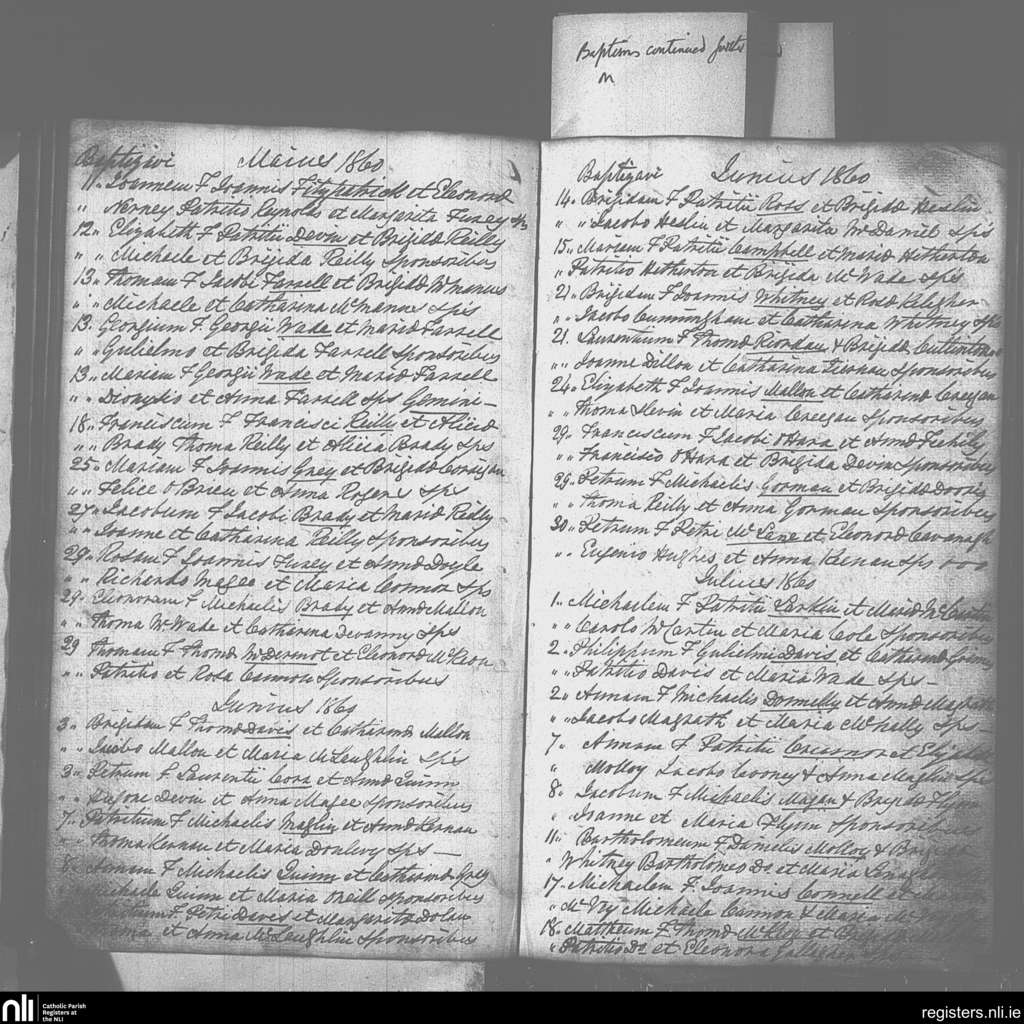 Baptisms continued
Baptizavi Maius 1860
11 " Joannem F Joannis Fitzpatrick et Eleonora
" Nerney Patritio Reynolds et Margarita Furey Sps
12 " Elizabeth F Patritii Devin et Brigida Reilly
" " Michaele et Brigida Reilly Sponsoribus
13 " Thomam F Jacobi Farrell et Brigida McManus
" " Michaele et Catharina McManus Sps
13 " Georgium F Georgii Wade et Maria Farrell
" " Gulielmo et Brigida Farrell Sponsoribus
13 " Mariam F Georgii Wade et Maria Farrell
" " Dionysio et Anna Farrell Sps Gemini —
18 " Franciscum F Francisci Reilly et Alicia
" " Brady Thoma Reilly et Alicia Brady Sps
25 " Mariam F Joannis Grey et Brigida Corrigan
" " Felice O'Brien et Anna Rogers Sps
27 " Jacobum F Jacobi Brady et Maria Reilly
" " Joanne et Catharina Reilly Sponsoribus
29 " Rosam F Joannis Furey et Anna Doyle
" " Richardo Magee et Maria Connor Sps
29 " Eleonoram F Michaelis Brady et Anna Mallon
" " Thoma McWade et Catharina Devanny Sps
29 Thomam F Thoma McDermot et Eleonora McKeon
" " Patritio et Rosa Cannon Sponsoribus
Junius 1860
3 " Brigidam F Thoma Davis et Catharina Mallon
" " Jacobo Mallon et Maria McLaughlin Sps
3 " Petrum F Laurentii Cora et Anna Quinn
" " Eugone Devin et Anna Magee Sponsoribus
7 " Patritium F Michaelis Maglin et Anna Kernan
" " Thoma Kernan et Maria Donlevy Sps —
8 " Annam F Michaelis Quinn et Catharina Grey
Michaele Quinn et Maria O'Neill Sponsoribus
F Petri Davis et Margarita Dolan
et Anna McLaughlin Sponsoribus
Baptizavi Junius 1860
14 " Brigidam F Patritii Ross et Brigida Heslin
" " Jacobo Heslin et Margarita McDaniel Sps
15 " Mariam F Patritii Campbell et Maria Hetherton
" Patritio Hetherton et Brigida McWade Sps
21 " Brigidam F Joannis Whitney et Rosa Kelegher
" " Jacobo Cunningham et Catharina Whitney Sps
21 " Laurentium F Thoma Riordan & Brigida
" " Joanne Dillon et Catharina Tiernan Sponsoribus
24 " Elizabeth F Joannis Mallon et Catharina Creegan
" " Thoma Slevin et Maria Creegan Sponsoribus
29 " Franciscum F Jacobi O'Hara et Anna Feehily
" " Francisco O'Hara et Brigida Devin Sponsoribus
29 " Petrum F Michaelis Gorman et Brigida
" " Thoma Reilly et Anna Gorman Sponsoribus
30 " Petrum F Petri McLane et Eleonora Cavanagh
" " Eugenio Hughes et Anna Keenan Sps ooo
Julius 1860
1 " Michaelem F Patritii Larkin et Maria
" " Carolo McCarten et Maria Cole Sponsoribus
2 " Philippum F Gulielmi Davis et Catharina
" " Patritio Davis et Maria Wade Sps —
2 " Annam F Michaelis Donnelly et Anna Magrath
" " Jacobo Magrath et Maria McNally Sps —
7 " Annam F Patritii et
" Molloy Jacobo Cooney & Anna Maglin Sps
8 " Jacobum F Michaelis Magan & Brigida Flynn
" Joanne et Maria Flynn Sponsoribus
11 " Bartholomeum F Danielis Molloy & Brigida
" Whitney Bartholomeo Do et Maria
17 " Michaelem F Joannis Connell et
" Michaele Cannon & Maria
18 " Mattheum F Thoma et
" Patritio Do et Eleonora Gallagher
nli Catholic Parish
Registers at
the NLI
registers.nli.ie